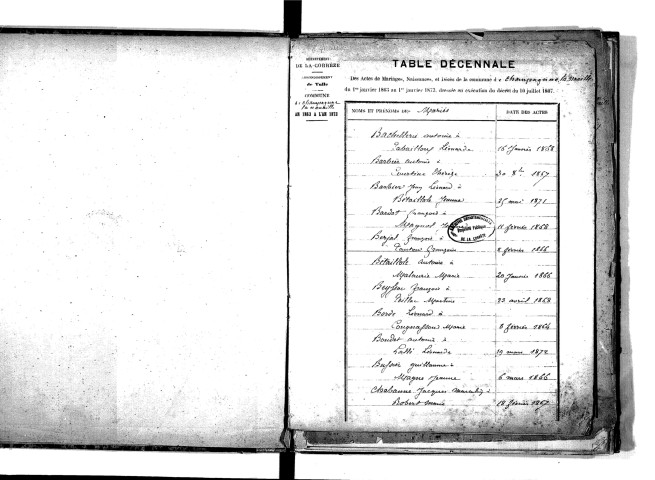 DÉPARTEMENT
DE LA CORRÈZE
ARRONDISSEMENT
de Tulle
COMMUNE
AN 1863 A L'AN 1873
TABLE DÉCENNALE
Des Actes de Mariages, Naissances, et Décès de la commune d
du 1er janvier 1863 au 1er janvier 1873, dressée en exécution du décret du 20 juillet 1807.
NOMS ET PRÉNOMS DES Mariés
DATE DES ACTES
Bachellerie antoine à
Léonarde 16 janvier 1868
Barbier antoine à
Courtine Thérèze 30 8bre 1867
Barbier Jean Léonard à
Betaillole Jeanne 25 mai 1871
Bardot françois à
Magnol 11 février 1868
françois à
françoise 2 février 1866
Betaillole antoine à
Malaurie Marie 20 janvier 1866
Beyssac françois à
Martine 23 avril 1868
Borde Léonard à
Marie 8 février 1864
Boudet antoine à
Léonarde 19 mars 1872
guillaume à
Magne Jeanne 6 mars 1866
Chabanne Jacques à
Robert Marie 18 février 1867
ARCHIVES DÉPARTEMENTALES
DE LA CORRÈZE